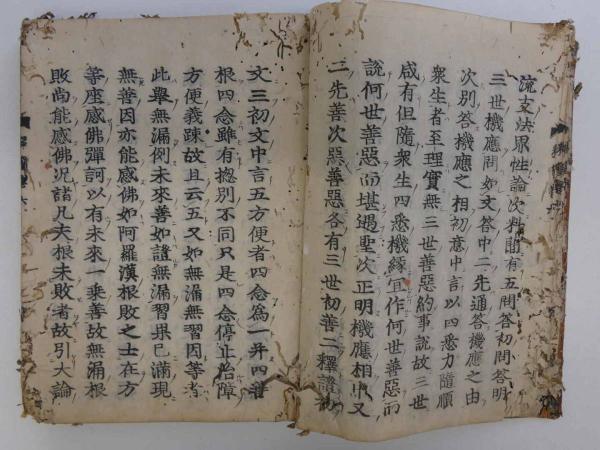 流支決眾性論次料簡有五問答初問答明
三世機應問如文答中二先通答機應之由
次別答機應之相初意中言以四悉力隨順
眾生者至理實無三世善惡約事說故三世
咸有但隨眾生四悉機緣宜作何世善惡而
說何世善惡而堪遇聖次正明機應相中又
二先善次惡善惡各有三世初善二釋證初
文三初文中言五方便者四念爲一并四善
根四念雖有揔別不同只是四念停止治障
方便義疎故且云五又如無漏無習因等者
此舉無漏例未來善如證無漏習果已滿現
無善因亦能感佛如阿羅漢根敗之士在方
等座感佛彈訶以有未來一乗善故無漏根
敗尚能感佛況諸凡夫根未敗者故引大論